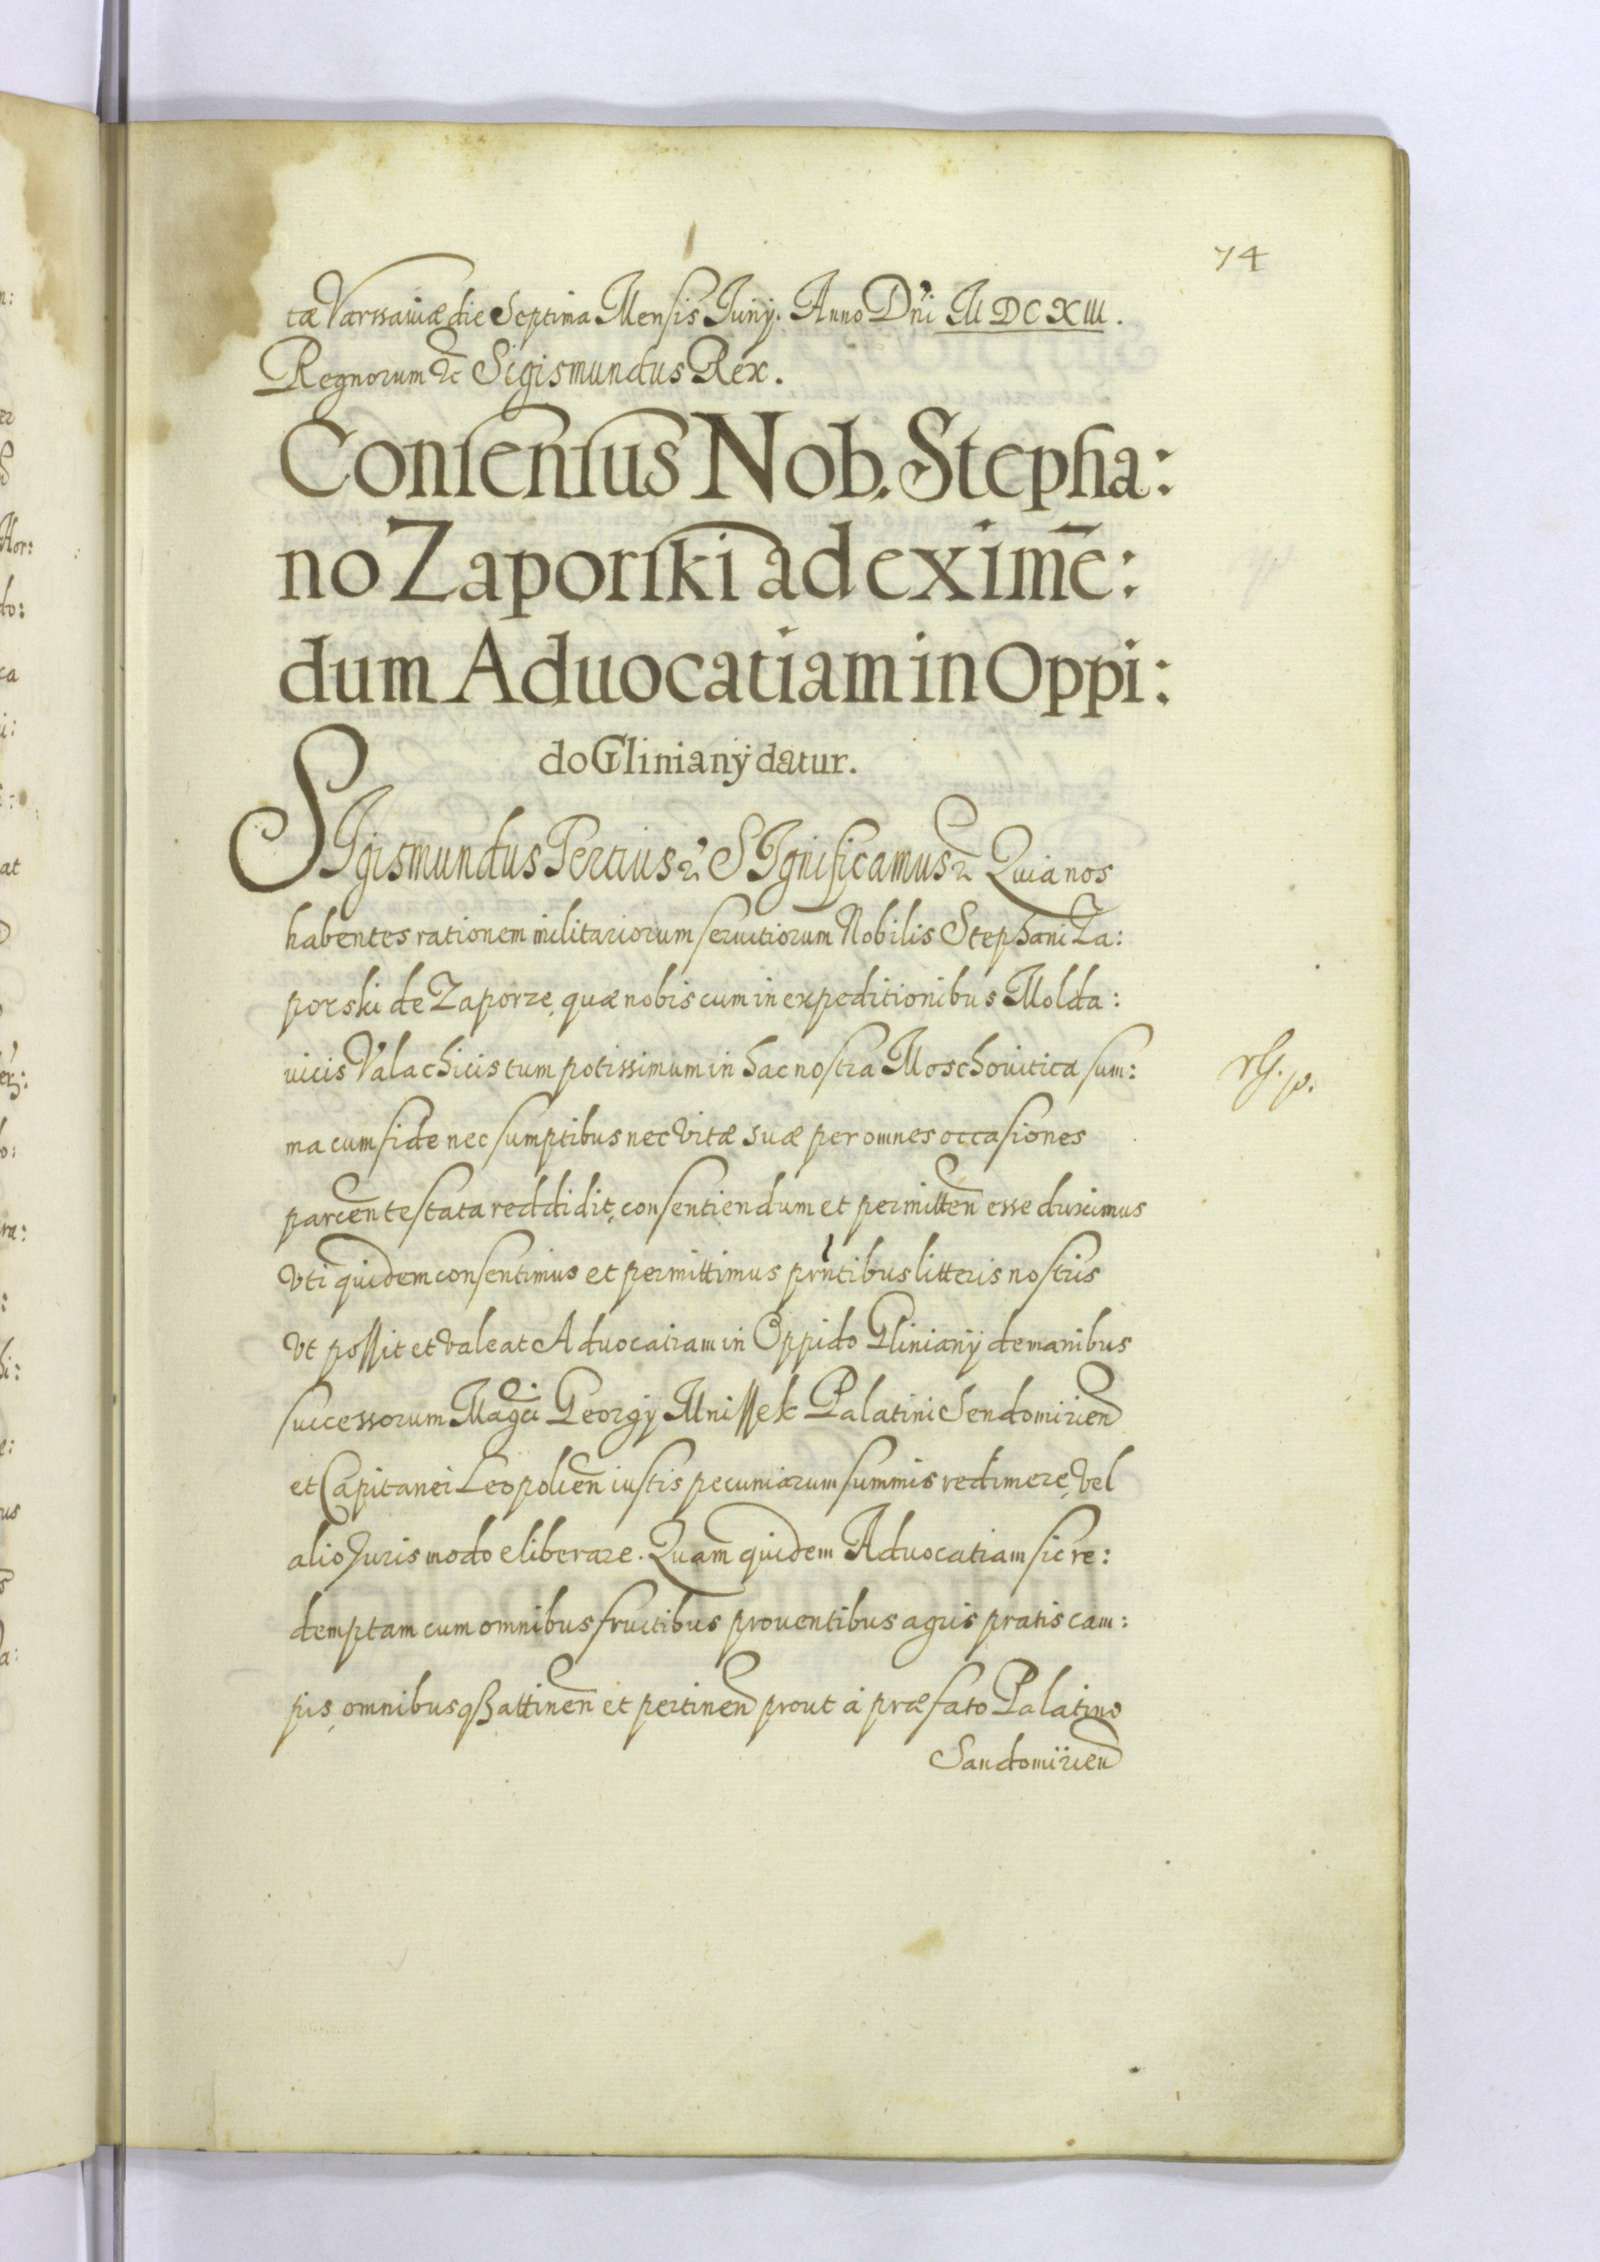 74
tæ Varssaviæ die Septima Mensis Iunij. Anno Dni M DC XIII.
Regnorum &c Sigismundus Rex.
Consensus Nob. Stepha:
no Zaporski ad eximē:
dum Aduocatiam in Oppi:
do Glinianÿ datur.
SIgismundus Tertius &c SIgnificamus &c Quia nos
habentes rationem militariorum seruitiorum Nobilis Stephani Za:
porski de Zaporze, quæ nobiscum in expeditionibus Molda:
uicis Valachicis tum potissimum in hac nostra Moschouitica sum:
ma cum fide nec sumptibus nec vitæ suæ per omnes occasiones
parcen testata reddidit, consentiendum et permitten esse duximus
vti quidem consentimus et permittimus prntibus litteris nostris
vt possit et valeat Aduocatiam in Oppido Glinianÿ de manibus
successorum Magci Georgij Mnissek Palatini Sendomirien
et Capitanei Leopolien iustis pecuniarum summis redimere, vel
alio Iuris modo eliberare. Quam quidem Aduocatiam sic re:
demptam cum omnibus fructibus prouentibus agris pratis cam:
pis, omnibusqß attinen et pertinen prout a præfato Palatino
Sandomirien